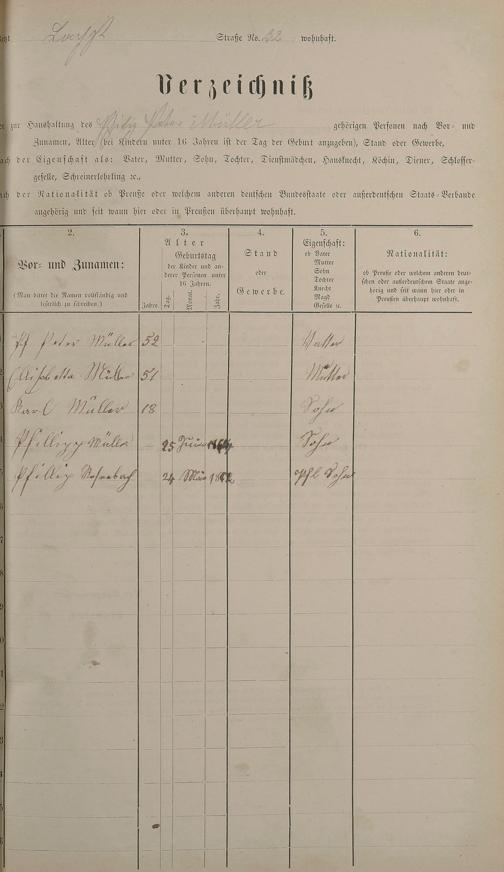 Straße No. 32 wohnhaft.
Verzeichniß
zur Haushaltung des Peter Müller gehörigen Personen nach Vor- und
Zunamen, Alter (bei Kindern unter 16 Jahren ist der Tag der Geburt anzugeben), Stand oder Gewerbe,
der Eigenschaft als: Vater, Mutter, Sohn, Tochter, Dienstmädchen, Hausknecht, Köchin, Diener, Schlosser-
geselle, Schreinerlehrling ꝛc.,
der Nationalität ob Preuße oder welchem anderen deutschen Bundesstaate oder außerdeutschen Staats-Verbande
angehörig und seit wann hier oder in Preußen überhaupt wohnhaft.
2.
Vor- und Zunamen:
(Man bittet die Namen vollständig und
leserlich zu schreiben.)
3.
Alter
Geburtstag
der Kinder und an-
derer Personen unter
16 Jahren.
Jahre.
Tag.
Monat.
Jahr.
4.
Stand
oder
Gewerbe.
5.
Eigenschaft:
ob Vater
Mutter
Sohn
Tochter
Knecht
Magd
Geselle ꝛc.
6.
Nationalität:
ob Preuße oder welchem anderen deut-
schen oder außerdeutschen Staate ange-
hörig und seit wann hier oder in
Preußen überhaupt wohnhaft.
Peter Müller 52 Vatter
Elisabetha Müller 51 Mutter
Karl Müller 18 Sohn
Phillipp Müller 25 Sohn
Phillip 24 März Sohn